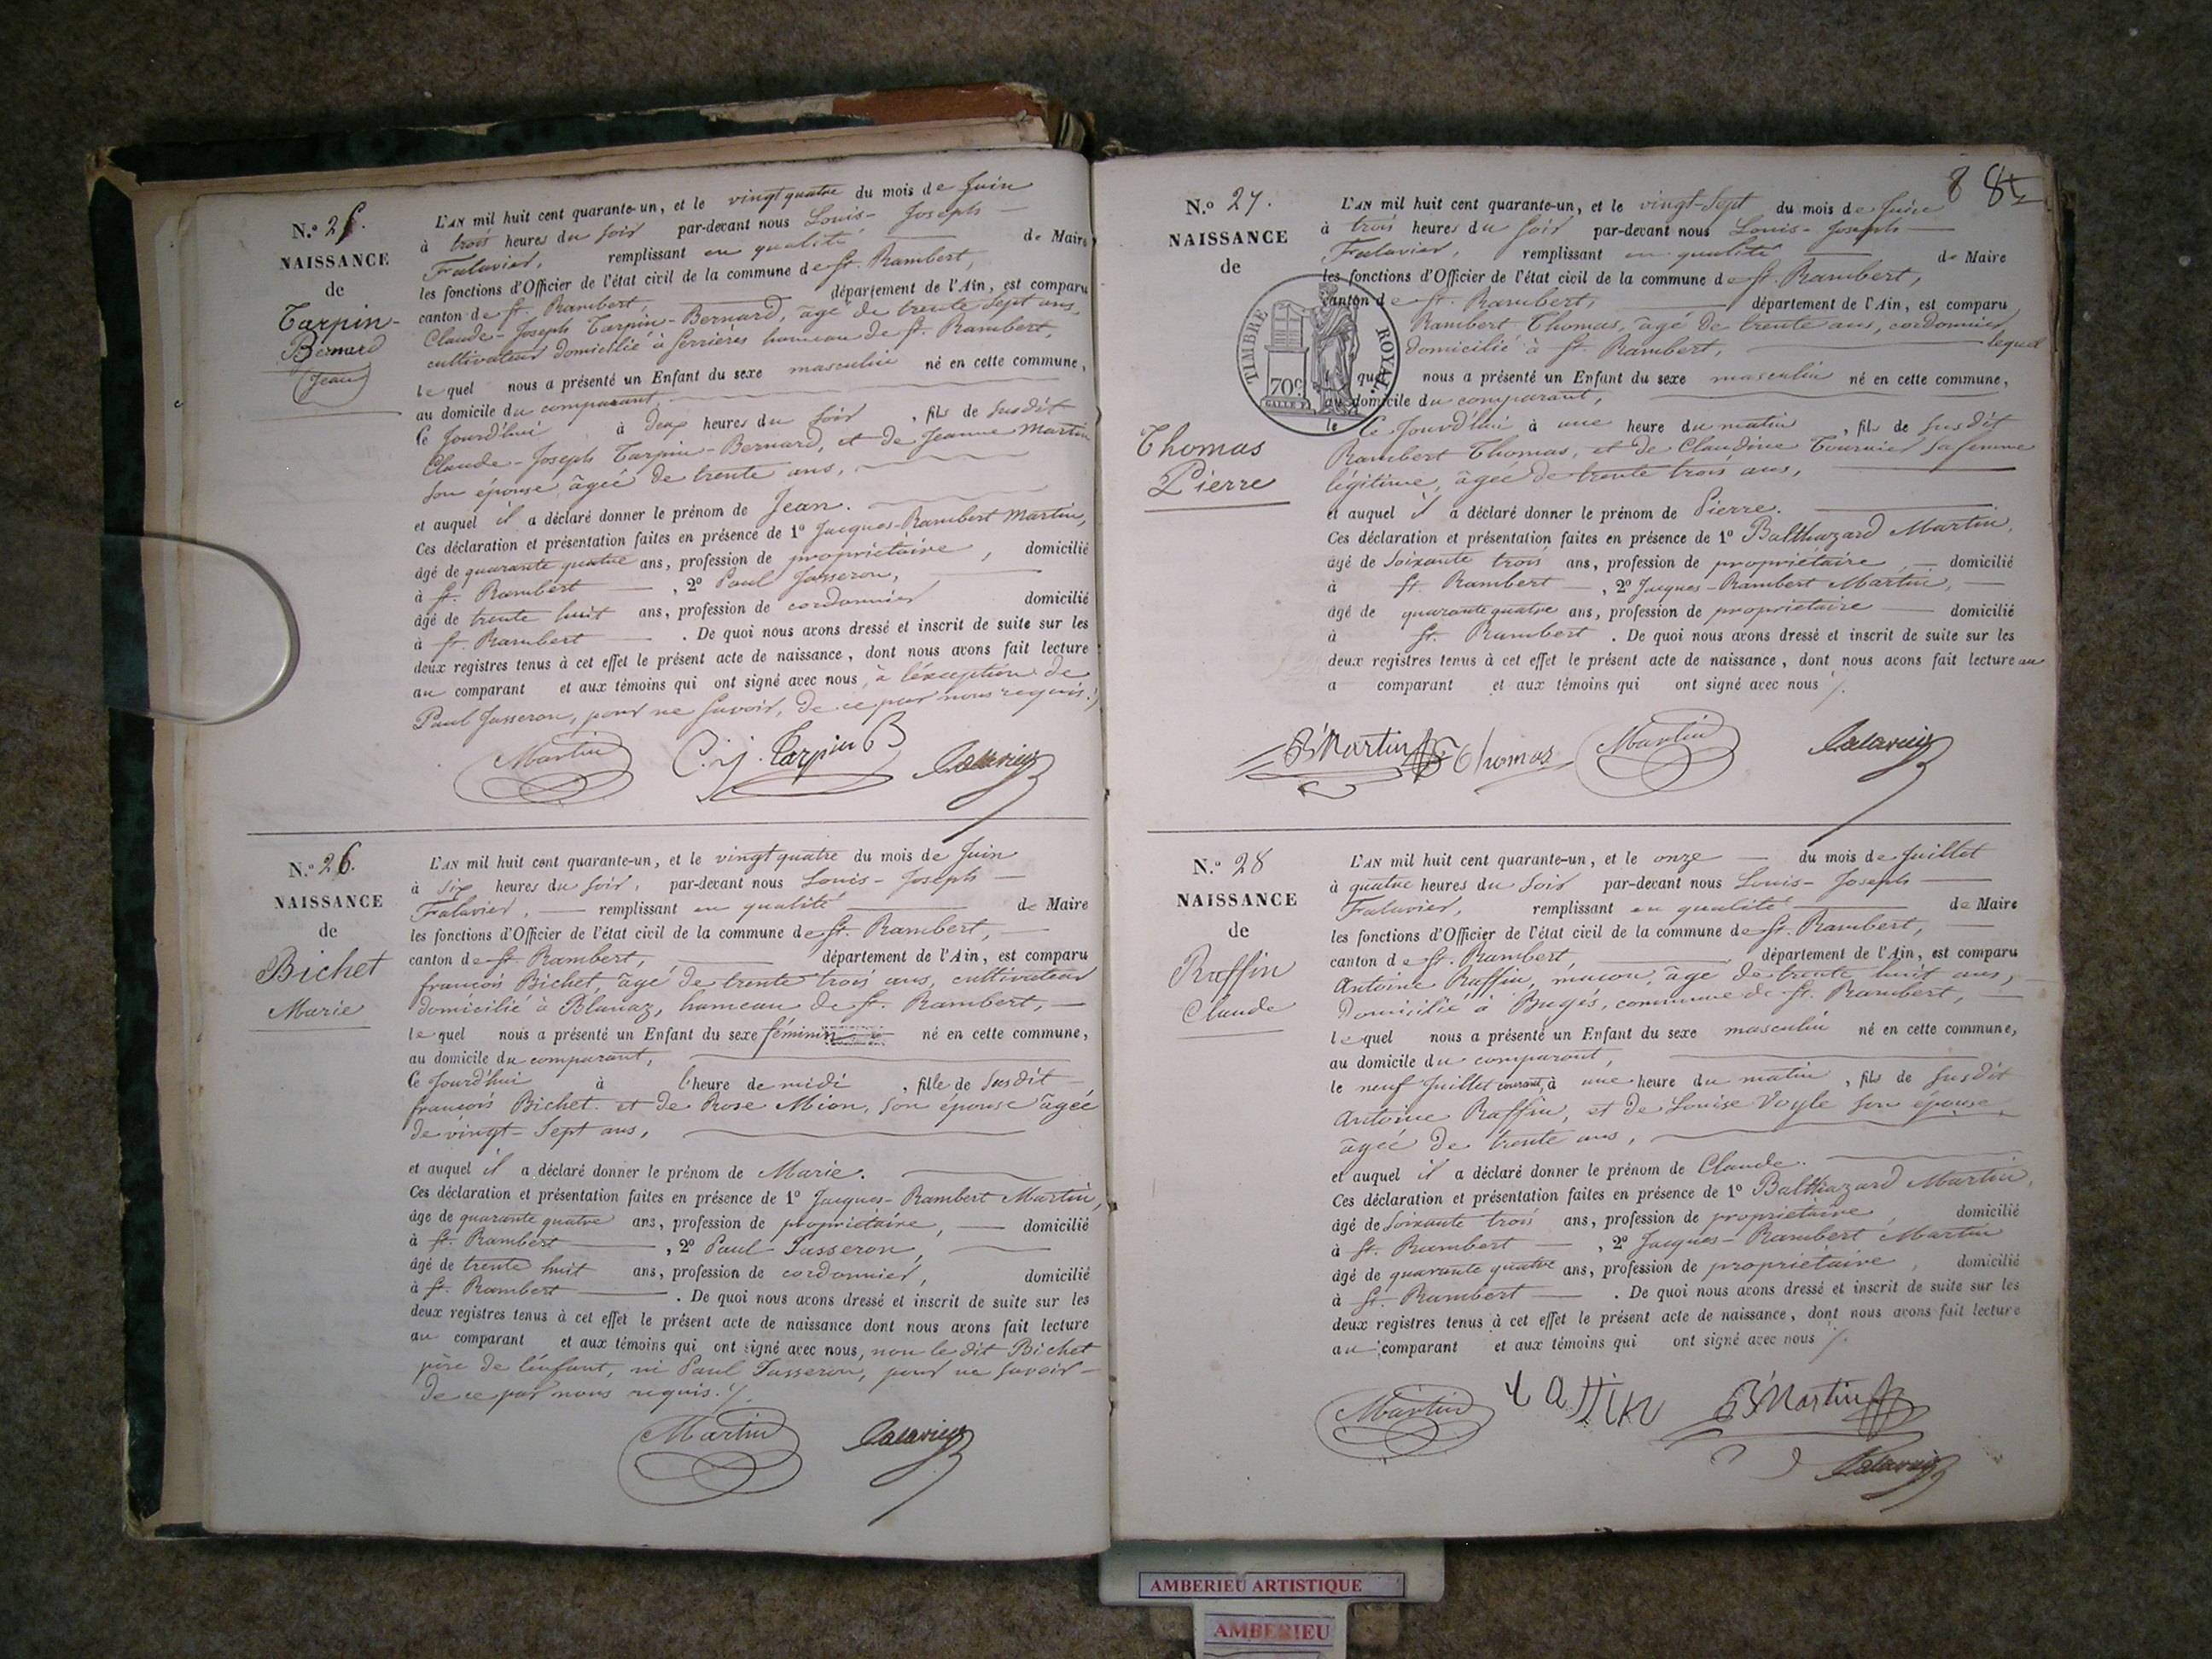 N.º 25.
NAISSANCE
de
Tarpin-
Bernard
Jean
L'AN mil huit cent quarante-un, et le vingt quatre du mois de Juin
à trois heures du soir par-devant nous Louis-Joseph
Falavier, remplissant en qualité de Maire
les fonctions d'Officier de l'état civil de la commune de St. Rambert,
canton de St. Rambert, département de l'Ain, est comparu
Claude-Joseph Tarpin-Bernard, âgé de trente sept ans,
cultivateur domicilié à Serrières hameau de St. Rambert,
lequel nous a présenté un Enfant du sexe masculin né en cette commune,
au domicile du comparant,
Ce jourd'hui à deux heures du soir, fils de susdit
Claude-Joseph Tarpin-Bernard, et de Jeanne Martin
son épouse, âgée de trente ans,
et auquel il a déclaré donner le prénom de Jean.
Ces déclaration et présentation faites en présence de 1º Jacques-Rambert Martin,
âgé de quarante quatre ans, profession de propriétaire, domicilié
à St. Rambert, 2º Paul Jusseron,
âgé de trente huit ans, profession de cordonnier domicilié
à St. Rambert. De quoi nous avons dressé et inscrit de suite sur les
deux registres tenus à cet effet le présent acte de naissance, dont nous avons fait lecture
au comparant et aux témoins qui ont signé avec nous, à l'exception de
Paul Jusseron, pour ne savoir, de ce par nous requis ./.
Martin C. j. Tarpin B Falavier
N.º 26.
NAISSANCE
de
Bichet
Marie
L'AN mil huit cent quarante-un, et le vingt quatre du mois de Juin
à six heures du soir, par-devant nous Louis-Joseph
Falavier, remplissant en qualité de Maire
les fonctions d'Officier de l'état civil de la commune de St. Rambert,
canton de St. Rambert, département de l'Ain, est comparu
françois Bichet, âgé de trente trois ans, cultivateur
domicilié à Blanaz, hameau de St. Rambert,
lequel nous a présenté un Enfant du sexe féminin né en cette commune,
au domicile du comparant,
Ce jourd'hui à l'heure de midi, fille de susdit
françois Bichet et de Rose Mion, son épouse âgée
de vingt-sept ans,
et auquel il a déclaré donner le prénom de Marie.
Ces déclaration et présentation faites en présence de 1º Jacques-Rambert Martin,
âgé de quarante quatre ans, profession de propriétaire, domicilié
à St. Rambert, 2º Paul Jusseron,
âgé de trente huit ans, profession de cordonnier, domicilié
à St. Rambert. De quoi nous avons dressé et inscrit de suite sur les
deux registres tenus à cet effet le présent acte de naissance dont nous avons fait lecture
au comparant et aux témoins qui ont signé avec nous, non le dit Bichet
père de l'enfant, ni Paul Jusseron, pour ne savoir
de ce par nous requis ./.
Martin Falavier
8
N.º 27.
NAISSANCE
de
Thomas
Pierre
TIMBRE ROYAL
70c
L'AN mil huit cent quarante-un, et le vingt-sept du mois de Juin
à trois heures du soir par-devant nous Louis-Joseph
Falavier, remplissant en qualité de Maire
les fonctions d'Officier de l'état civil de la commune de St. Rambert,
canton de St. Rambert, département de l'Ain, est comparu
Rambert Thomas, âgé de trente ans, cordonnier
domicilié à St. Rambert, lequel
quel nous a présenté un Enfant du sexe masculin né en cette commune,
au domicile du comparant,
le Ce jourd'hui à une heure du matin, fils de susdit
Rambert Thomas, et de Claudine Tournier sa femme
légitime, âgée de trente trois ans,
et auquel il a déclaré donner le prénom de Pierre.
Ces déclaration et présentation faites en présence de 1º Balthazard Martin,
âgé de soixante trois ans, profession de propriétaire, domicilié
à St. Rambert, 2º Jacques-Rambert Martin,
âgé de quarante quatre ans, profession de propriétaire domicilié
à St. Rambert. De quoi nous avons dressé et inscrit de suite sur les
deux registres tenus à cet effet le présent acte de naissance, dont nous avons fait lecture au
a comparant et aux témoins qui ont signé avec nous ./.
B Martin Thomas Martin Falavier
N.º 28
NAISSANCE
de
Raffin
Claude
L'AN mil huit cent quarante-un, et le onze du mois de Juillet
à quatre heures du soir par-devant nous Louis-Joseph
Falavier, remplissant en qualité de Maire
les fonctions d'Officier de l'état civil de la commune de St. Rambert,
canton de St. Rambert, département de l'Ain, est comparu
Antoine Raffin, maçon, âgé de trente huit ans,
domicilié à Bugés, commune de St. Rambert,
lequel nous a présenté un Enfant du sexe masculin né en cette commune,
au domicile du comparant,
le neuf Juillet courant, à une heure du matin, fils de susdit
Antoine Raffin, et de Louise Voyle son épouse,
âgée de trente ans,
et auquel il a déclaré donner le prénom de Claude.
Ces déclaration et présentation faites en présence de 1º Balthazard Martin,
âgé de soixante trois ans, profession de propriétaire, domicilié
à St. Rambert, 2º Jacques-Rambert Martin
âgé de quarante quatre ans, profession de propriétaire, domicilié
à St. Rambert. De quoi nous avons dressé et inscrit de suite sur les
deux registres tenus à cet effet le présent acte de naissance, dont nous avons fait lecture
au comparant et aux témoins qui ont signé avec nous ./.
Martin raffin B Martin
Falavier
AMBERIEU ARTISTIQUE
AMBERIEU